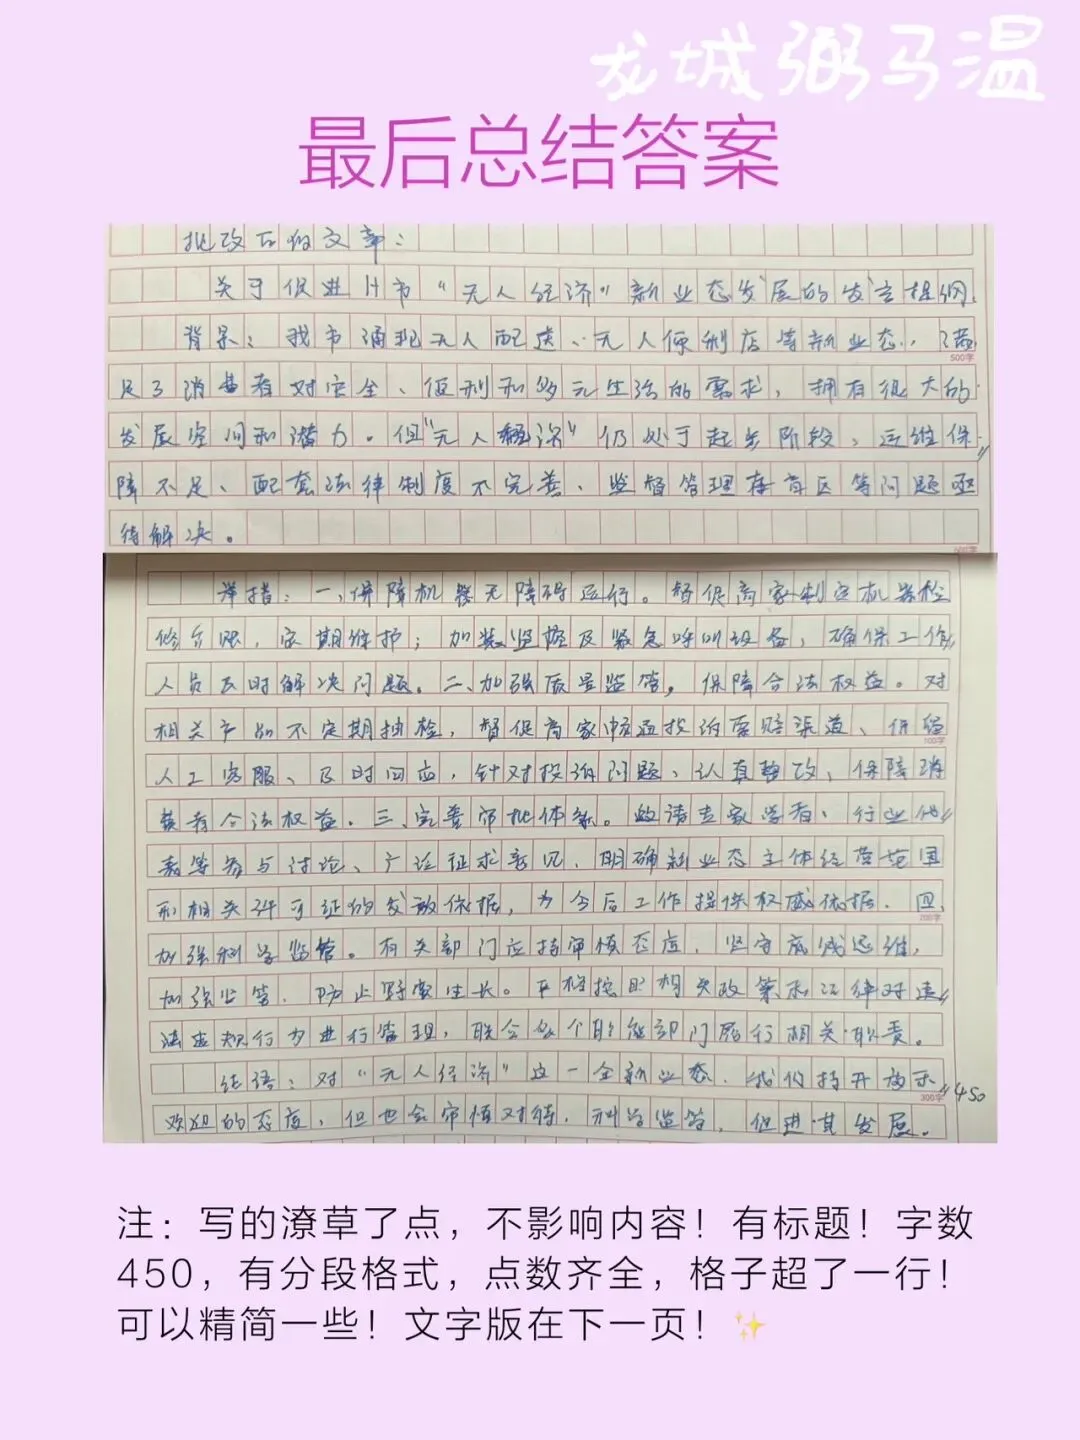 龙城弼马温
最后总结答案
批改后的文章：
关于促进H市“无人经济”新业态发展的发言提纲
背景：我市涌现无人配送、无人便利店等新业态，满
足了消费者对安全、便利和多元生活的需求，拥有很大的
发展空间和潜力。但“无人经济”仍处于起步阶段，运维保
障不足、配套法律制度不完善、监督管理存盲区等问题亟
待解决。
举措：一、保障机器无障碍运行。督促商家制定机器检
修年限，定期维护；加装监控及紧急呼叫设备，确保工作
人员及时解决问题。二、加强质量监管，保障合法权益。对
相关产品不定期抽检，督促商家畅通投诉索赔渠道、保留
人工客服、及时回应，针对投诉问题、认真整改，保障消
费者合法权益。三、完善审批体系。邀请专家学者、行业代
表等参与讨论、广泛征求意见，明确新业态主体经营范围
和相关许可证的发放依据，为今后工作提供权威依据。四、
加强科学监管。有关部门应持审慎态度，坚守底线思维，
加强监管，防止野蛮生长。严格按照相关政策和法律对违
法违规行为进行管理，联合各个职能部门履行相关职责。
结语：对“无人经济”这一全新业态，我们持开放和
欢迎的态度，但也会审慎对待，科学监管，促进其发展。
450
注：写的潦草了点，不影响内容！有标题！字数
450，有分段格式，点数齐全，格子超了一行！
可以精简一些！文字版在下一页！✨